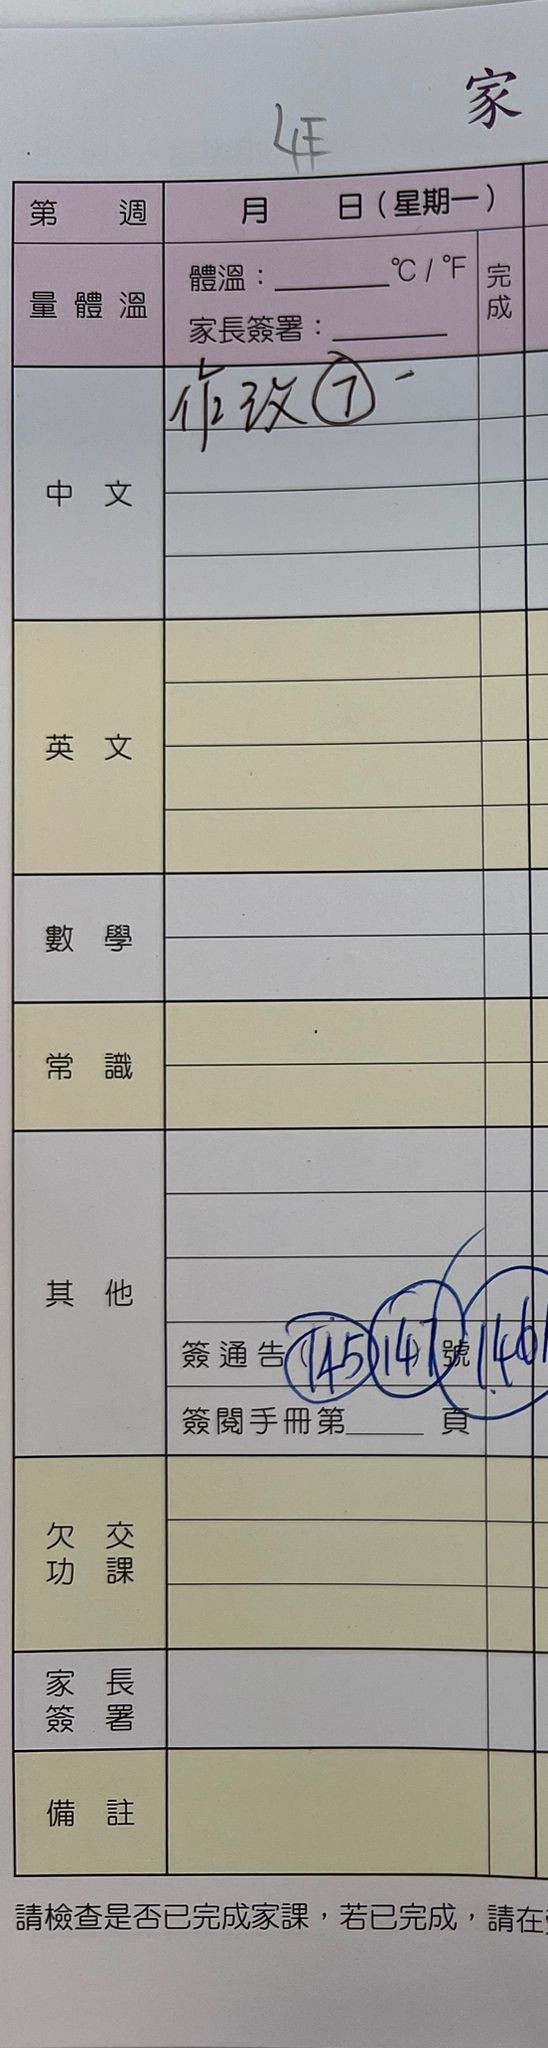 家
4E
第 週 月 日(星期一)
量體溫 體溫:______°C / °F 完成
家長簽署:______
中文 作改⑦
英文
數學
常識
其他
簽通告(145)(147)號(146)
簽閱手冊第____頁
欠交功課
家長簽署
備註
請檢查是否已完成家課，若已完成，請在